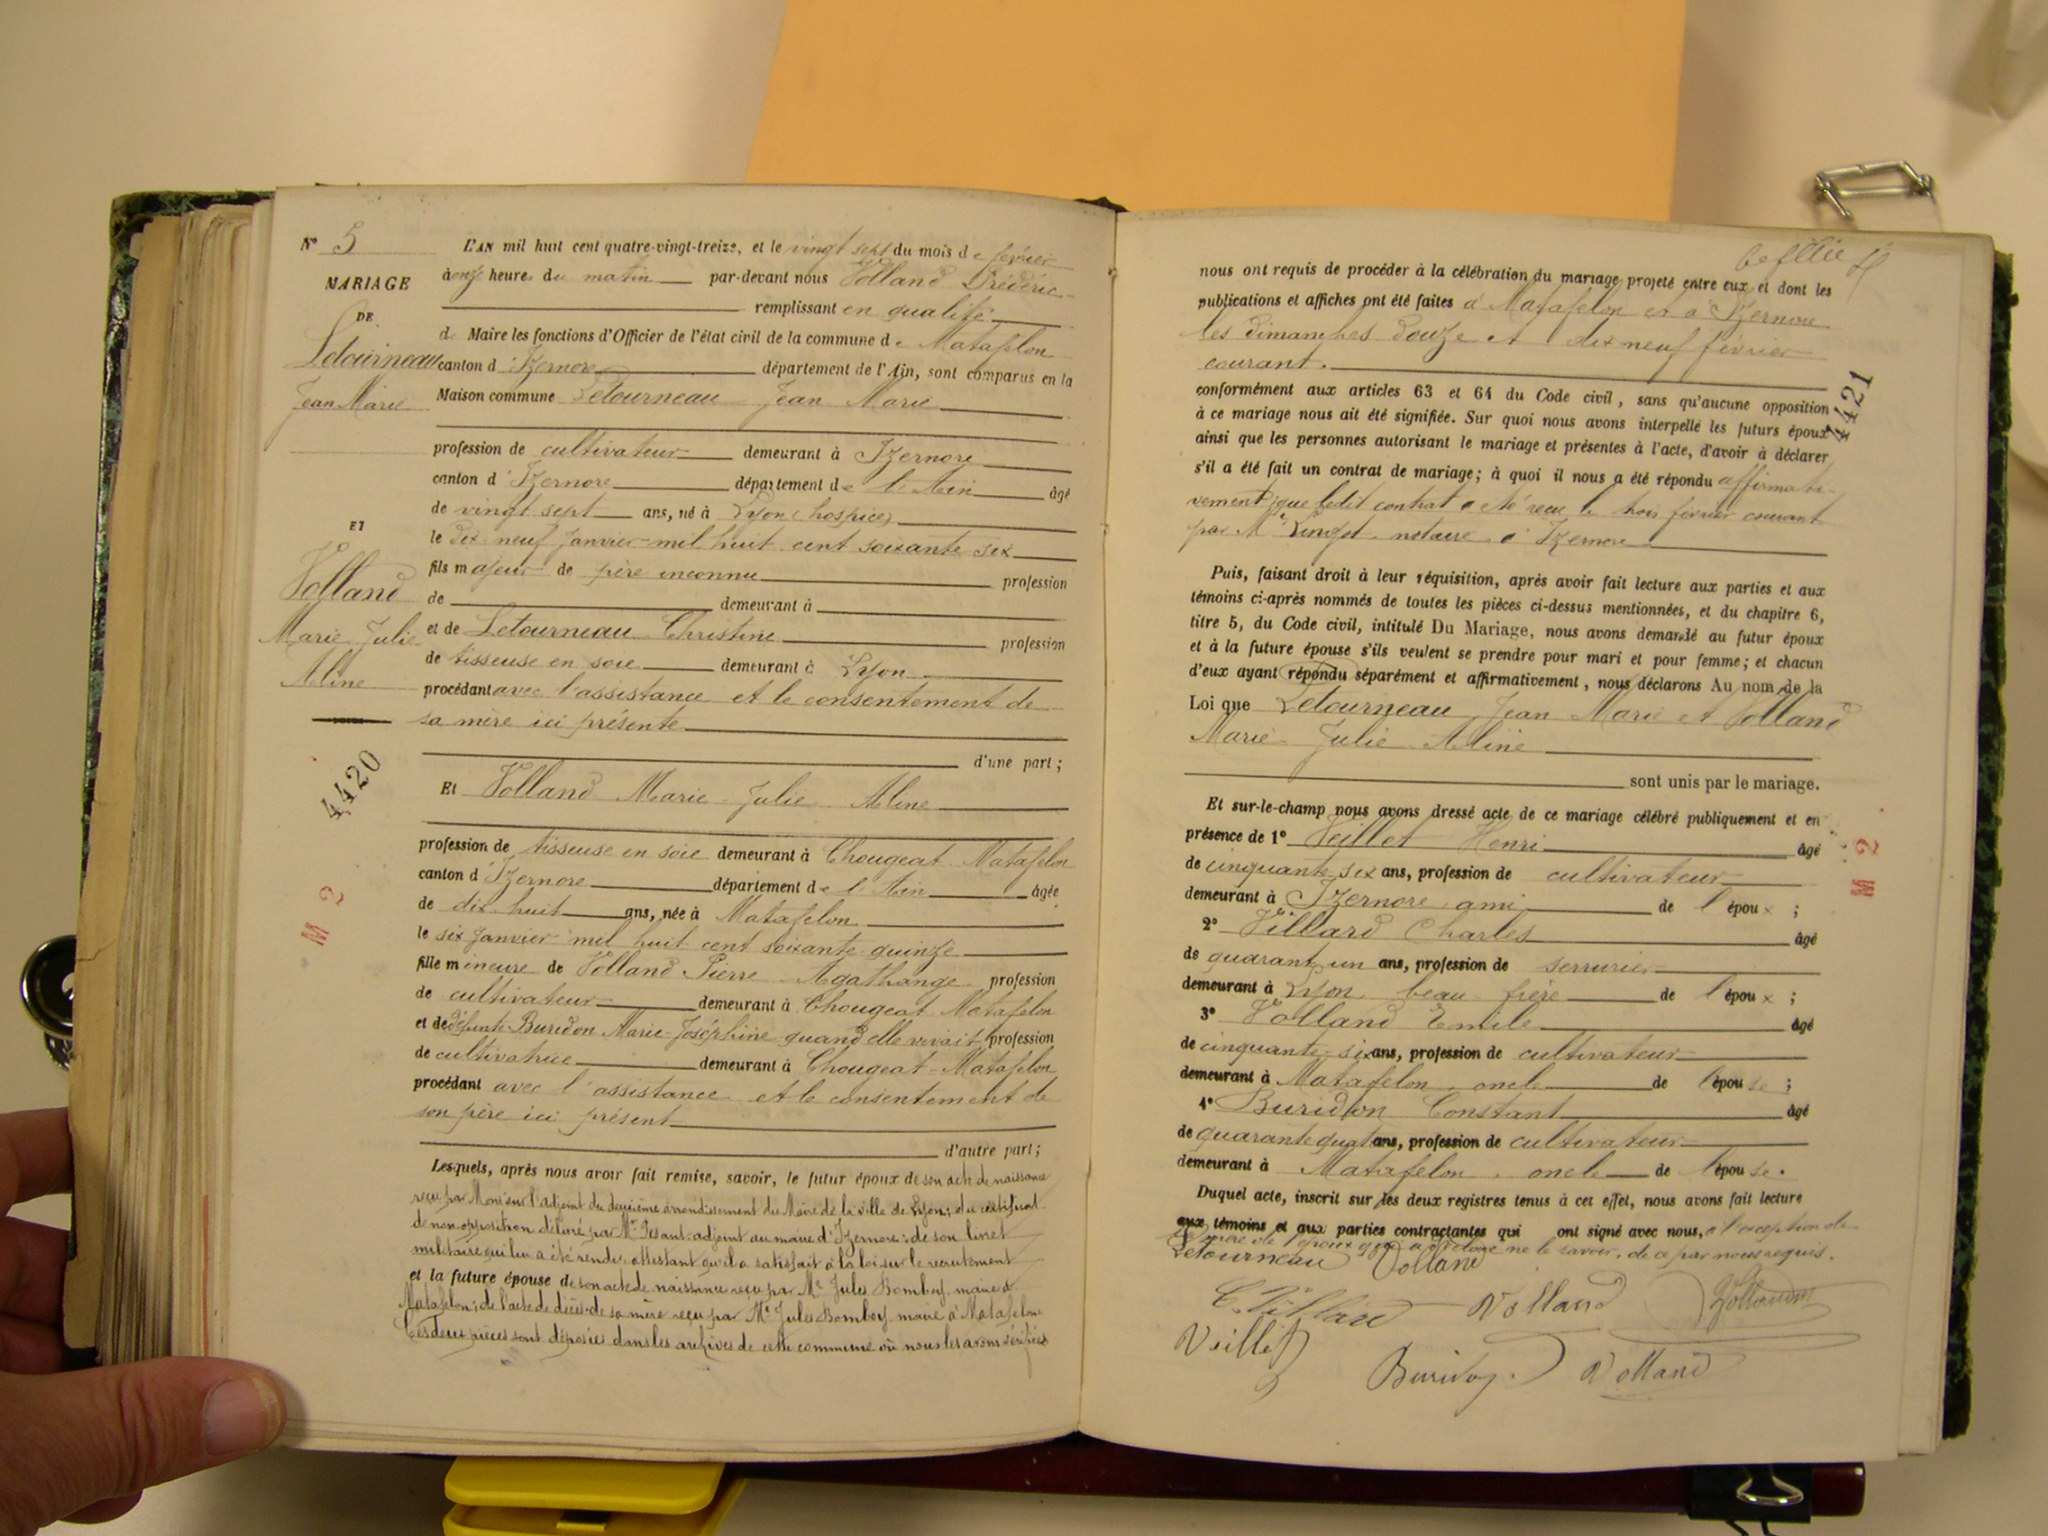 N° 5
MARIAGE
DE
Letourneau
Jean Marie
ET
Volland
Marie Julie
Aline
4420
M 2
L'AN mil huit cent quatre-vingt-treize, et le vingt sept du mois de février
à onze heures du matin par-devant nous Volland Frédéric
remplissant en qualité
de Maire les fonctions d'Officier de l'état civil de la commune de Matafelon
canton d'Izernore département de l'Ain, sont comparus en la
Maison commune Letourneau Jean Marie
profession de cultivateur demeurant à Izernore
canton d'Izernore département de l'Ain âgé
de vingt sept ans, né à Lyon (hospice)
le dix neuf janvier mil huit cent soixante six
fils majeur de père inconnu profession
de demeurant à
et de Letourneau Christine profession
de tisseuse en soie demeurant à Lyon
procédant avec l'assistance et le consentement de
sa mère ici présente
d'une part;
Et Volland Marie Julie Aline
profession de tisseuse en soie demeurant à Chougeat Matafelon
canton d'Izernore département de l'Ain âgée
de dix huit ans, née à Matafelon
le six janvier mil huit cent soixante quinze
fille mineure de Volland Pierre Agathange profession
de cultivateur demeurant à Chougeat Matafelon
et de défunte Buridon Marie Joséphine quand elle vivait profession
de cultivatrice demeurant à Chougeat - Matafelon
procédant avec l'assistance et le consentement de
son père ici présent
d'autre part;
Lesquels, après nous avoir fait remise, savoir, le futur époux de son acte de naissance
reçu par Monsieur l'adjoint du deuxième arrondissement du Maire de la ville de Lyon; du certificat
de non opposition délivré par Mr adjoint au maire d'Izernore; de son livret
militaire qui lui a été rendu, attestant qu'il a satisfait à la loi sur le recrutement
et la future épouse de son acte de naissance reçu par Mr Jules Bomboy maire à
Matafelon; de l'acte de décès de sa mère reçu par Mr Jules Bomboy maire à Matafelon
Ces deux pièces sont déposées dans les archives de cette commune où nous les avons vérifiées
nous ont requis de procéder à la célébration du mariage projeté entre eux et dont les
publications et affiches ont été faites à Matafelon et à Izernore
les dimanches douze et dix neuf février
courant.
conformément aux articles 63 et 64 du Code civil, sans qu'aucune opposition
à ce mariage nous ait été signifiée. Sur quoi nous avons interpellé les futurs époux
ainsi que les personnes autorisant le mariage et présentes à l'acte, d'avoir à déclarer
s'il a été fait un contrat de mariage; à quoi il nous a été répondu affirmati-
vement; que ledit contrat a été reçu le trois février courant
par Me notaire à Izernore
Puis, faisant droit à leur réquisition, après avoir fait lecture aux parties et aux
témoins ci-après nommés de toutes les pièces ci-dessus mentionnées, et du chapitre 6,
titre 5, du Code civil, intitulé Du Mariage, nous avons demandé au futur époux
et à la future épouse s'ils veulent se prendre pour mari et pour femme; et chacun
d'eux ayant répondu séparément et affirmativement, nous déclarons Au nom de la
Loi que Letourneau Jean Marie et Volland
Marie Julie Aline
sont unis par le mariage.
Et sur-le-champ nous avons dressé acte de ce mariage célébré publiquement et en
présence de 1° Veillet Henri âgé
de cinquante six ans, profession de cultivateur
demeurant à Izernore ami de l'époux;
2° Villard Charles âgé
de quarante un ans, profession de serrurier
demeurant à Lyon beau frère de l'époux;
3° Volland Emile âgé
de cinquante six ans, profession de cultivateur
demeurant à Matafelon, oncle de l'épouse;
4° Buridon Constant âgé
de quarante quatre ans, profession de cultivateur
demeurant à Matafelon, oncle de l'épouse.
Duquel acte, inscrit sur les deux registres tenus à cet effet, nous avons fait lecture
aux témoins et aux parties contractantes qui ont signé avec nous, à l'exception de
la mère de l'époux qui a déclaré ne le savoir, de ce par nous requis.
Letourneau Volland
C. Villard Volland
Veillet Buridon Volland
4421
M 2